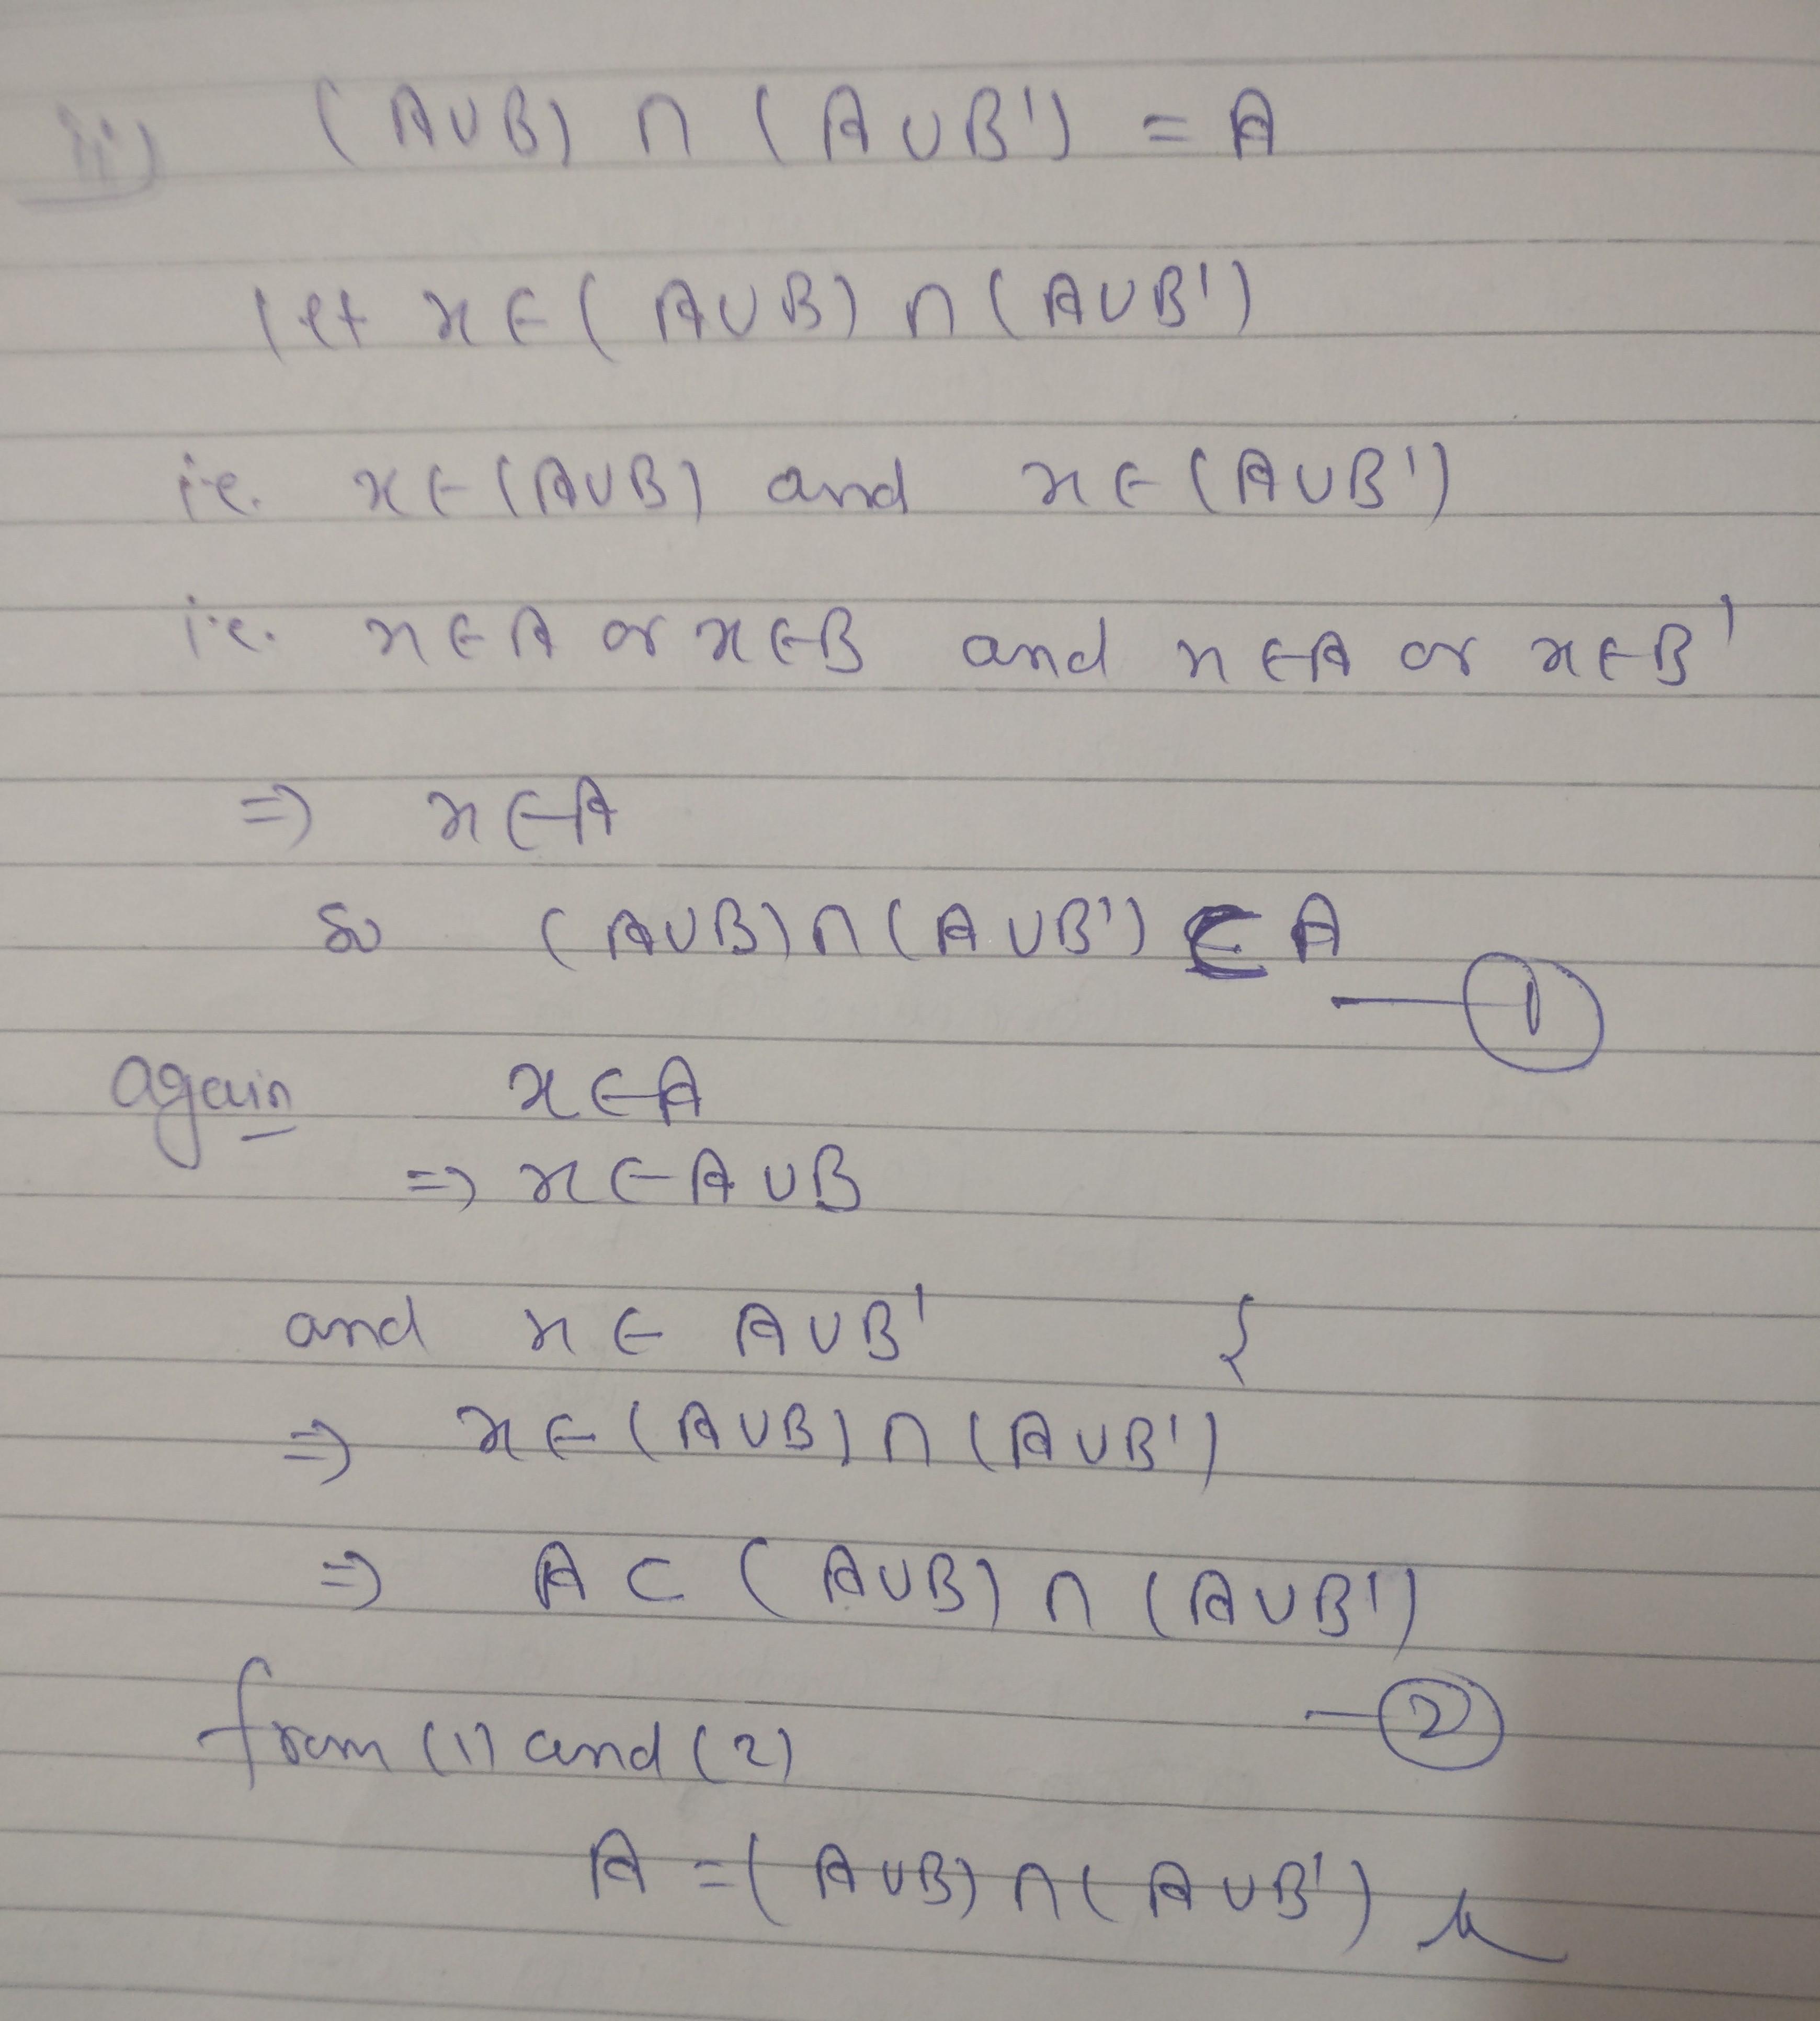 ii) (A∪B) ∩ (A∪B') = A
let x∈(A∪B)∩(A∪B')
i.e. x∈(A∪B) and x∈(A∪B')
i.e. x∈A or x∈B and x∈A or x∈B'
⇒ x∈A
so (A∪B)∩(A∪B') ⊆ A
— ①
again x∈A
⇒ x∈A∪B
and x∈ A∪B' {
⇒ x∈(A∪B)∩(A∪B')
⇒ A ⊂ (A∪B)∩(A∪B')
— ②
from (1) and (2)
A = (A∪B)∩(A∪B')